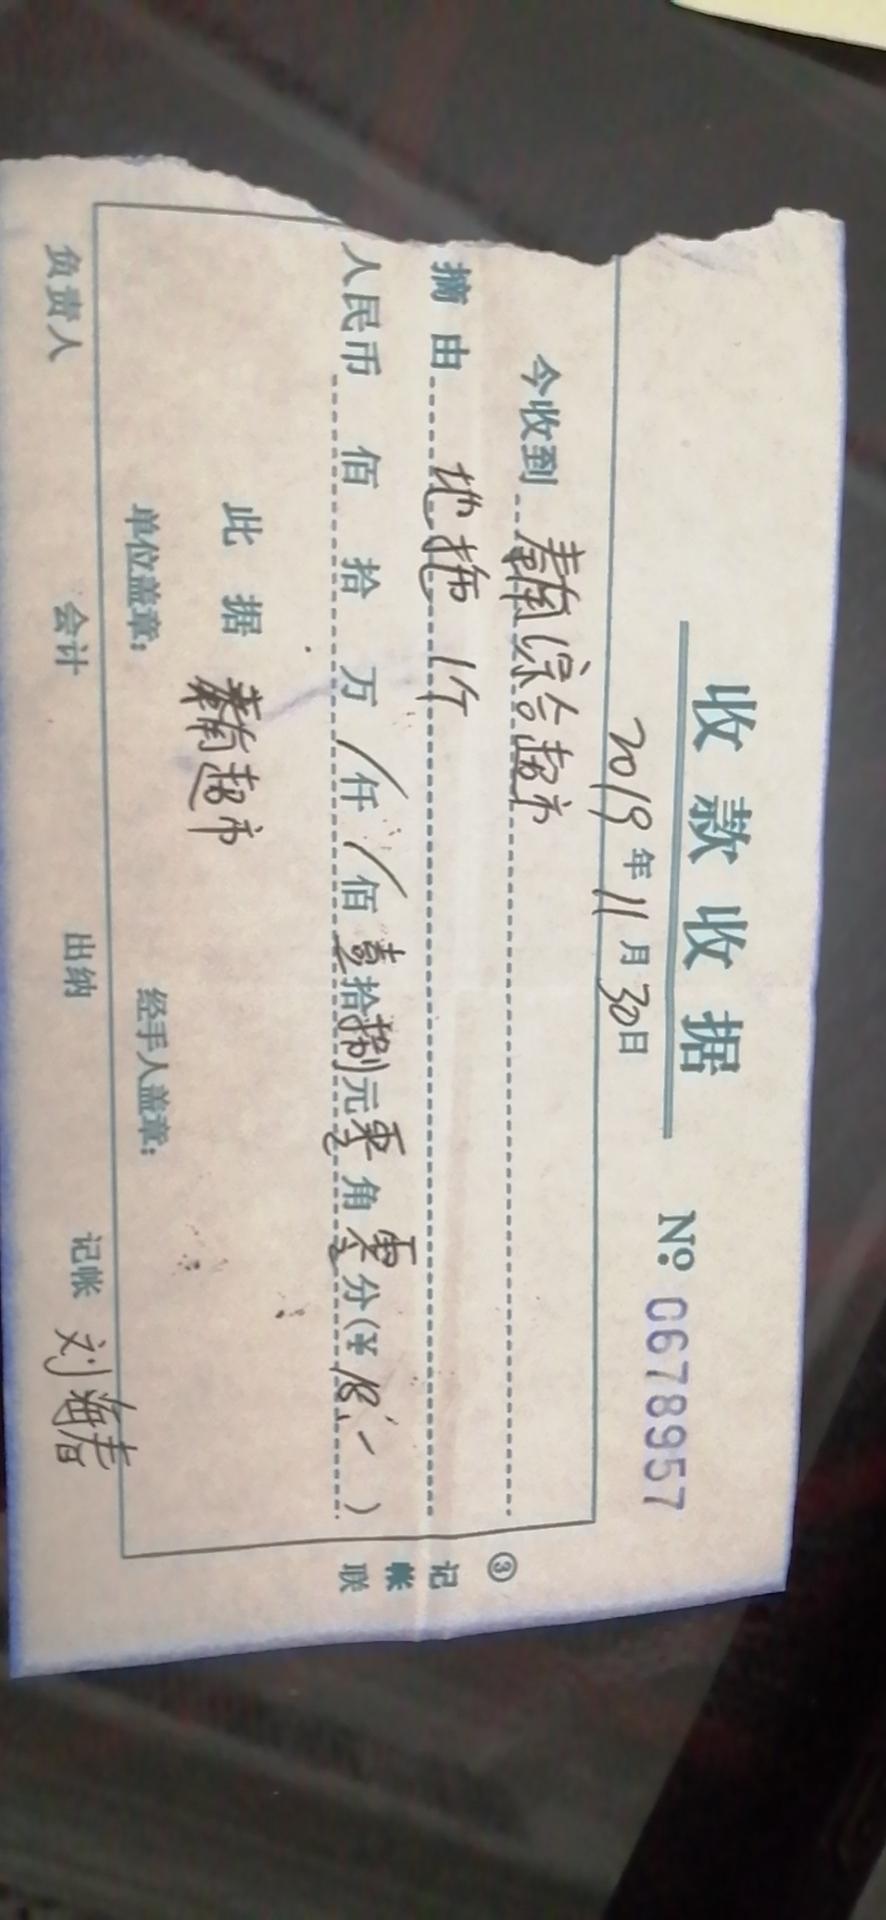 收款收据
№ 0678957
2019年11月30日
今收到 綜合超市
摘由 地拖 1个
人民币 佰 拾 万 / 仟 / 佰 壹拾捌元零角零分(¥18.-)
此据 超市
单位盖章: 经手人盖章:
负责人 会计 出纳 记帐 刘海春
③
记帐联